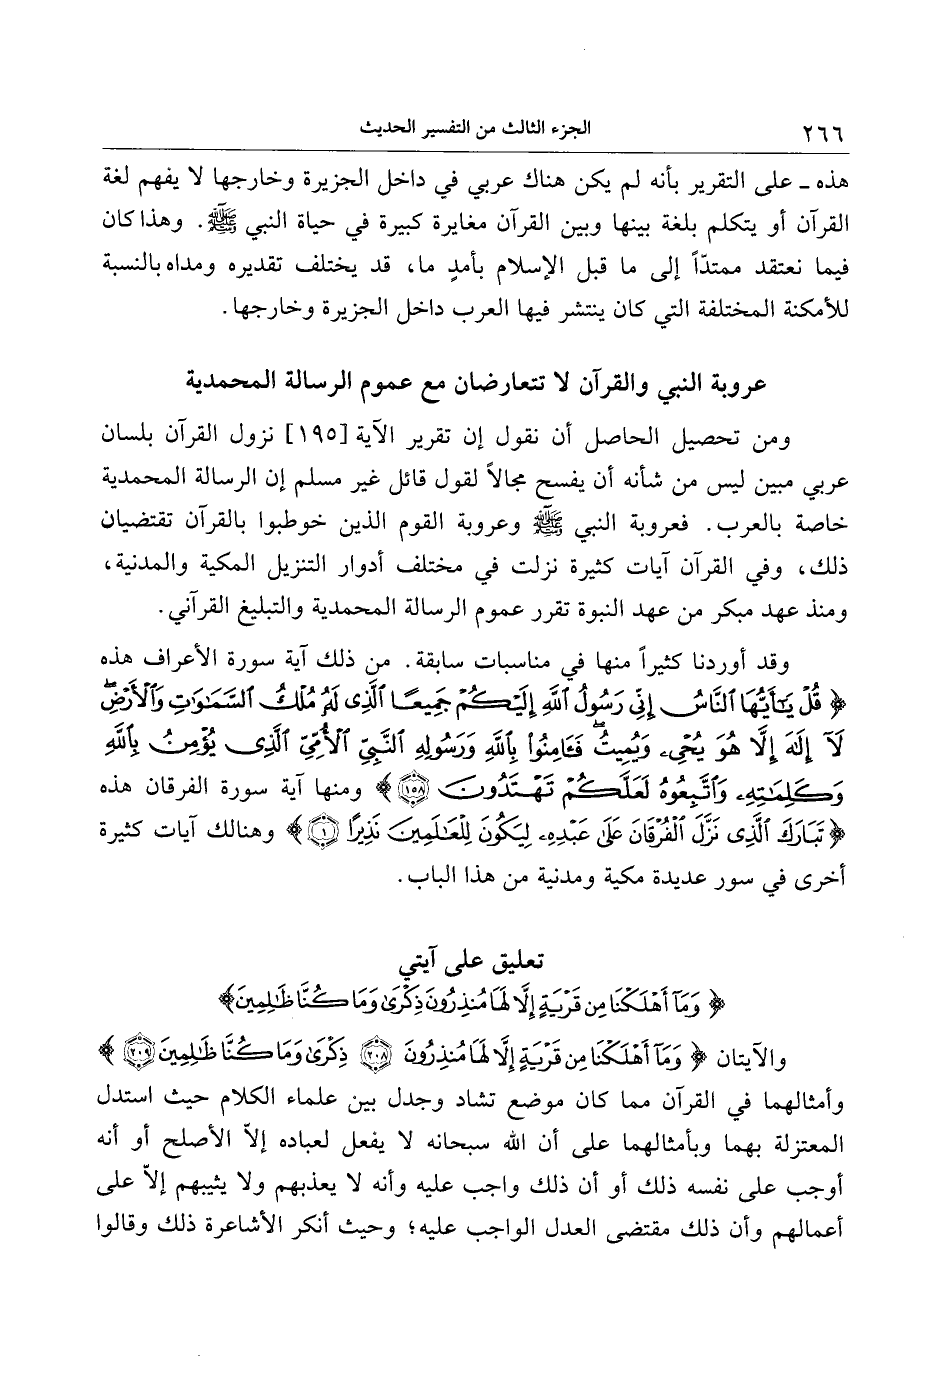 ٢٦٦ الجزء الثالث من التفسير الحديث
هذه ـ على التقرير بأنه لم يكن هناك عربي في داخل الجزيرة وخارجها لا يفهم لغة
القرآن أو يتكلم بلغة بينها وبين القرآن مغايرة كبيرة في حياة النبي ﷺ. وهذا كان
فيما نعتقد ممتدّاً إلى ما قبل الإسلام بأمدٍ ما، قد يختلف تقديره ومداه بالنسبة
للأمكنة المختلفة التي كان ينتشر فيها العرب داخل الجزيرة وخارجها.
عروبة النبي والقرآن لا تتعارضان مع عموم الرسالة المحمدية
ومن تحصيل الحاصل أن نقول إن تقرير الآية [١٩٥] نزول القرآن بلسان
عربي مبين ليس من شأنه أن يفسح مجالاً لقول قائل غير مسلم إن الرسالة المحمدية
خاصة بالعرب. فعروبة النبي ﷺ وعروبة القوم الذين خوطبوا بالقرآن تقتضيان
ذلك، وفي القرآن آيات كثيرة نزلت في مختلف أدوار التنزيل المكية والمدنية،
ومنذ عهد مبكر من عهد النبوة تقرر عموم الرسالة المحمدية والتبليغ القرآني.
وقد أوردنا كثيراً منها في مناسبات سابقة. من ذلك آية سورة الأعراف هذه
﴿ قُلْ يَـٰٓأَيُّهَا ٱلنَّاسُ إِنِّى رَسُولُ ٱللَّهِ إِلَيْكُمْ جَمِيعًا ٱلَّذِى لَهُۥ مُلْكُ ٱلسَّمَـٰوَٰتِ وَٱلْأَرْضِۖ
لَآ إِلَـٰهَ إِلَّا هُوَ يُحْىِۦ وَيُمِيتُۖ فَـَٔامِنُوا۟ بِٱللَّهِ وَرَسُولِهِ ٱلنَّبِىِّ ٱلْأُمِّىِّ ٱلَّذِى يُؤْمِنُ بِٱللَّهِ
وَكَلِمَـٰتِهِۦ وَٱتَّبِعُوهُ لَعَلَّكُمْ تَهْتَدُونَ ١٥٨ ﴾ ومنها آية سورة الفرقان هذه
﴿ تَبَارَكَ ٱلَّذِى نَزَّلَ ٱلْفُرْقَانَ عَلَىٰ عَبْدِهِۦ لِيَكُونَ لِلْعَـٰلَمِينَ نَذِيرًا ١ ﴾ وهنالك آيات كثيرة
أخرى في سور عديدة مكية ومدنية من هذا الباب.
تعليق على آيتي
﴿ وَمَآ أَهْلَكْنَا مِن قَرْيَةٍ إِلَّا لَهَا مُنذِرُونَ ذِكْرَىٰ وَمَا كُنَّا ظَـٰلِمِينَ﴾
والآيتان ﴿ وَمَآ أَهْلَكْنَا مِن قَرْيَةٍ إِلَّا لَهَا مُنذِرُونَ ٢٠٨ ذِكْرَىٰ وَمَا كُنَّا ظَـٰلِمِينَ ٢٠٩ ﴾
وأمثالهما في القرآن مما كان موضع تشاد وجدل بين علماء الكلام حيث استدل
المعتزلة بهما وبأمثالهما على أن الله سبحانه لا يفعل لعباده إلاّ الأصلح أو أنه
أوجب على نفسه ذلك أو أن ذلك واجب عليه وأنه لا يعذبهم ولا يثيبهم إلاّ على
أعمالهم وأن ذلك مقتضى العدل الواجب عليه؛ وحيث أنكر الأشاعرة ذلك وقالوا